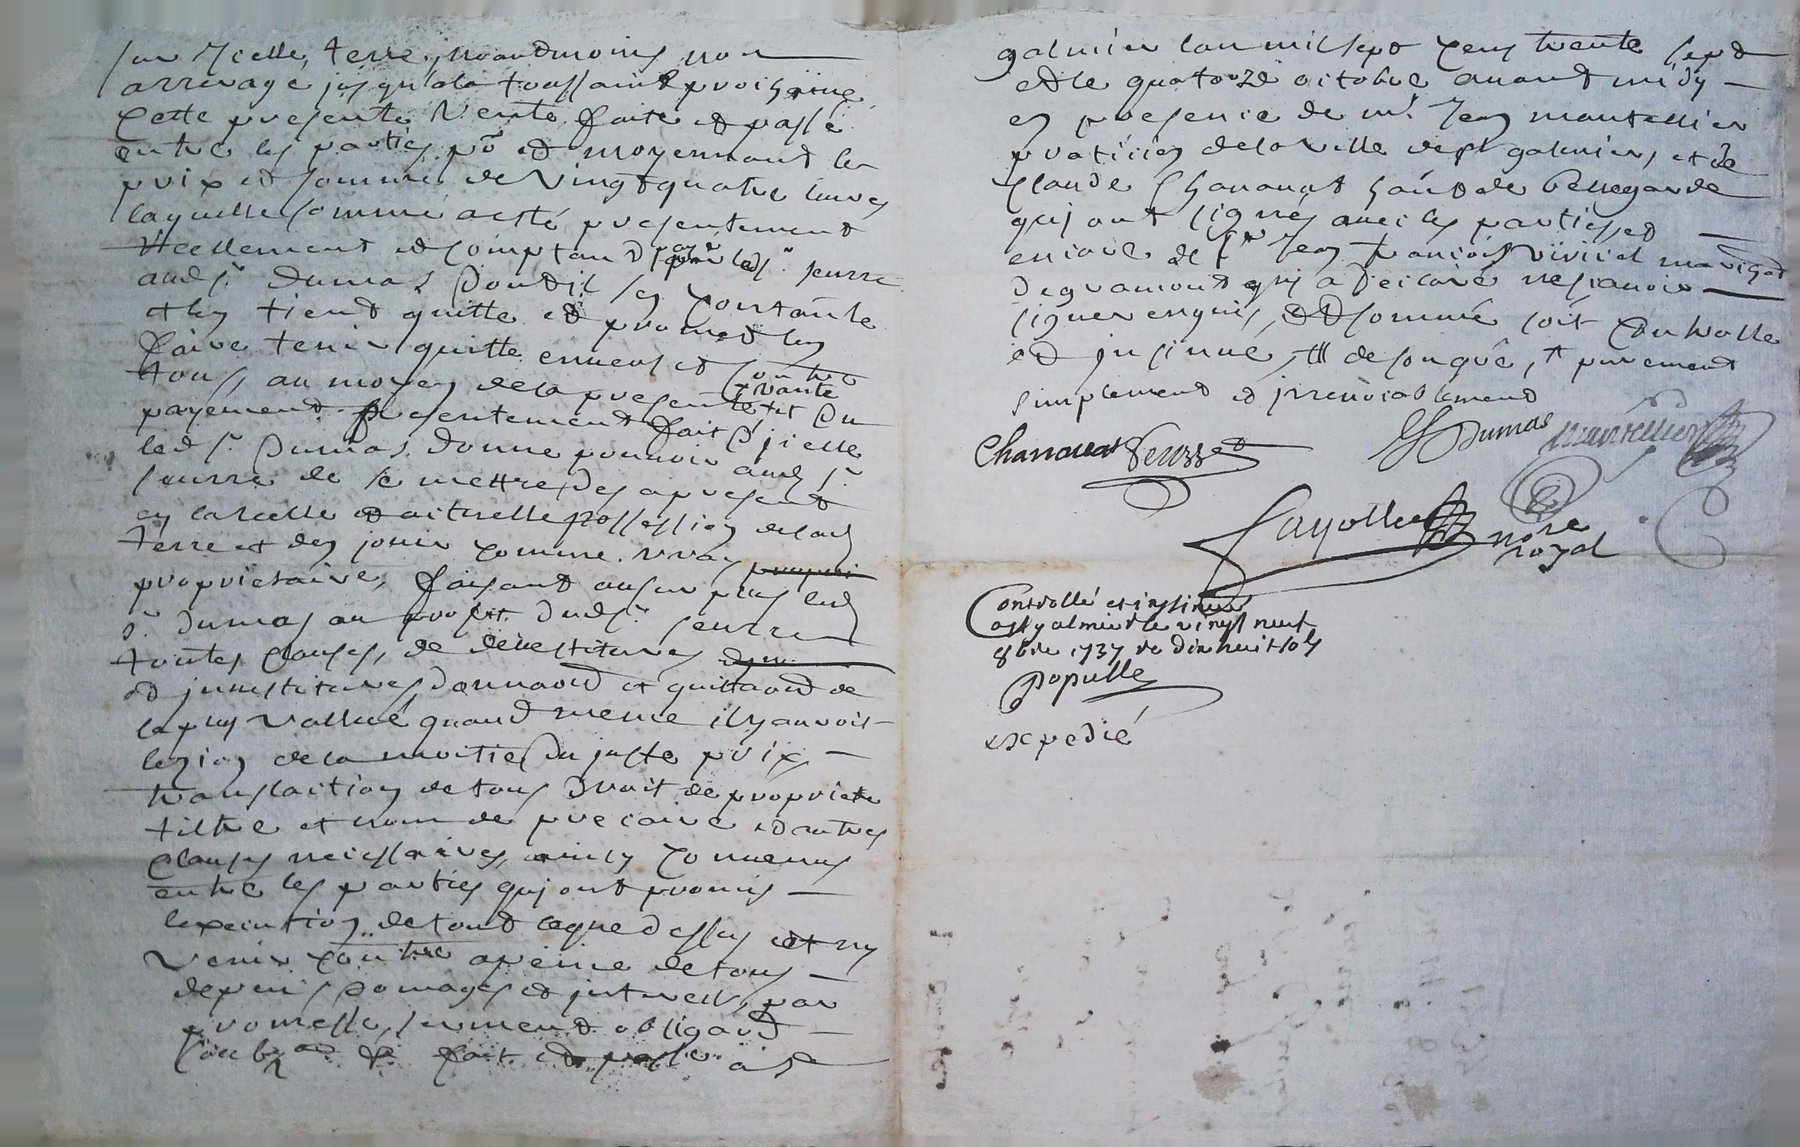 sur Icelle terre, neandmoins non
arreragé jusqu'ala toussaint prochaine,
Cette presente Vente faite et passé
entre les parties po.r et moyennant le
prix et somme de Vingt quatre livres
laquelle somme a esté presentement
reellement et comptan payé par led. s.r seurre
aud s.r Dumas Dont il se contante
et len tient quitte et promet len
faire tenir quitte envers et contre
tous, au moyen de la presente vante et du
payement presentement fait D'jcelle
led s.r Dumas, donne pouvoir aud s.r
seurre de se mettre des apresent
en la reelle et actuelle possession de lad
terre et den jouir comme vray
proprietaire, faisant au surplus led
s.r Dumas au proffit Dud s.r seurre
toutes clauses, de devestitures
et jnvestitures, donnant et quittant de
la plus vallue quand meme il y auroit
lezion de la moitié du juste prix
translaction de tous Droit de proprieté
tiltre et nom de precaire et autres
clauses necessaires, ainsy convenus
entre les parties quj ont promis
lexecution de tout ceque dessus et ny
Venir contre apeine de tous
depens Domages et jnterests, par
promesse, serment obligaõn
soub.on &c fait et passé a S.t
galmier lan mil sept cens trente sept
et le quatorze octobre avant midy
en presence de m.e Jean mantellier
praticien de la ville de s.t galmier, et de
Claude Chanavat habt de bellegarde
quj ont signés avec les parties et
encore de s.r Jean françois Viricel
de gramont quj a declaré ne scavoir
signer enquis, et sommé soit Controlle
et jnsinué, de son gré, purement
simplement et jrrevocablement
Chanavat Dumas Mantellier
Fayolle no.re royal
Controllé et insinué
a st galmier le vingt neuf
8bre 1737 re dix huit sols
Populle
expedié